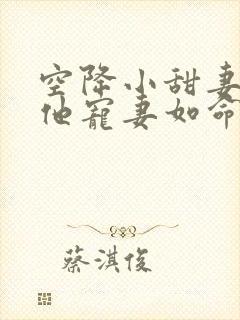 空降小甜妻
他宠妻如命
蔡淇俊